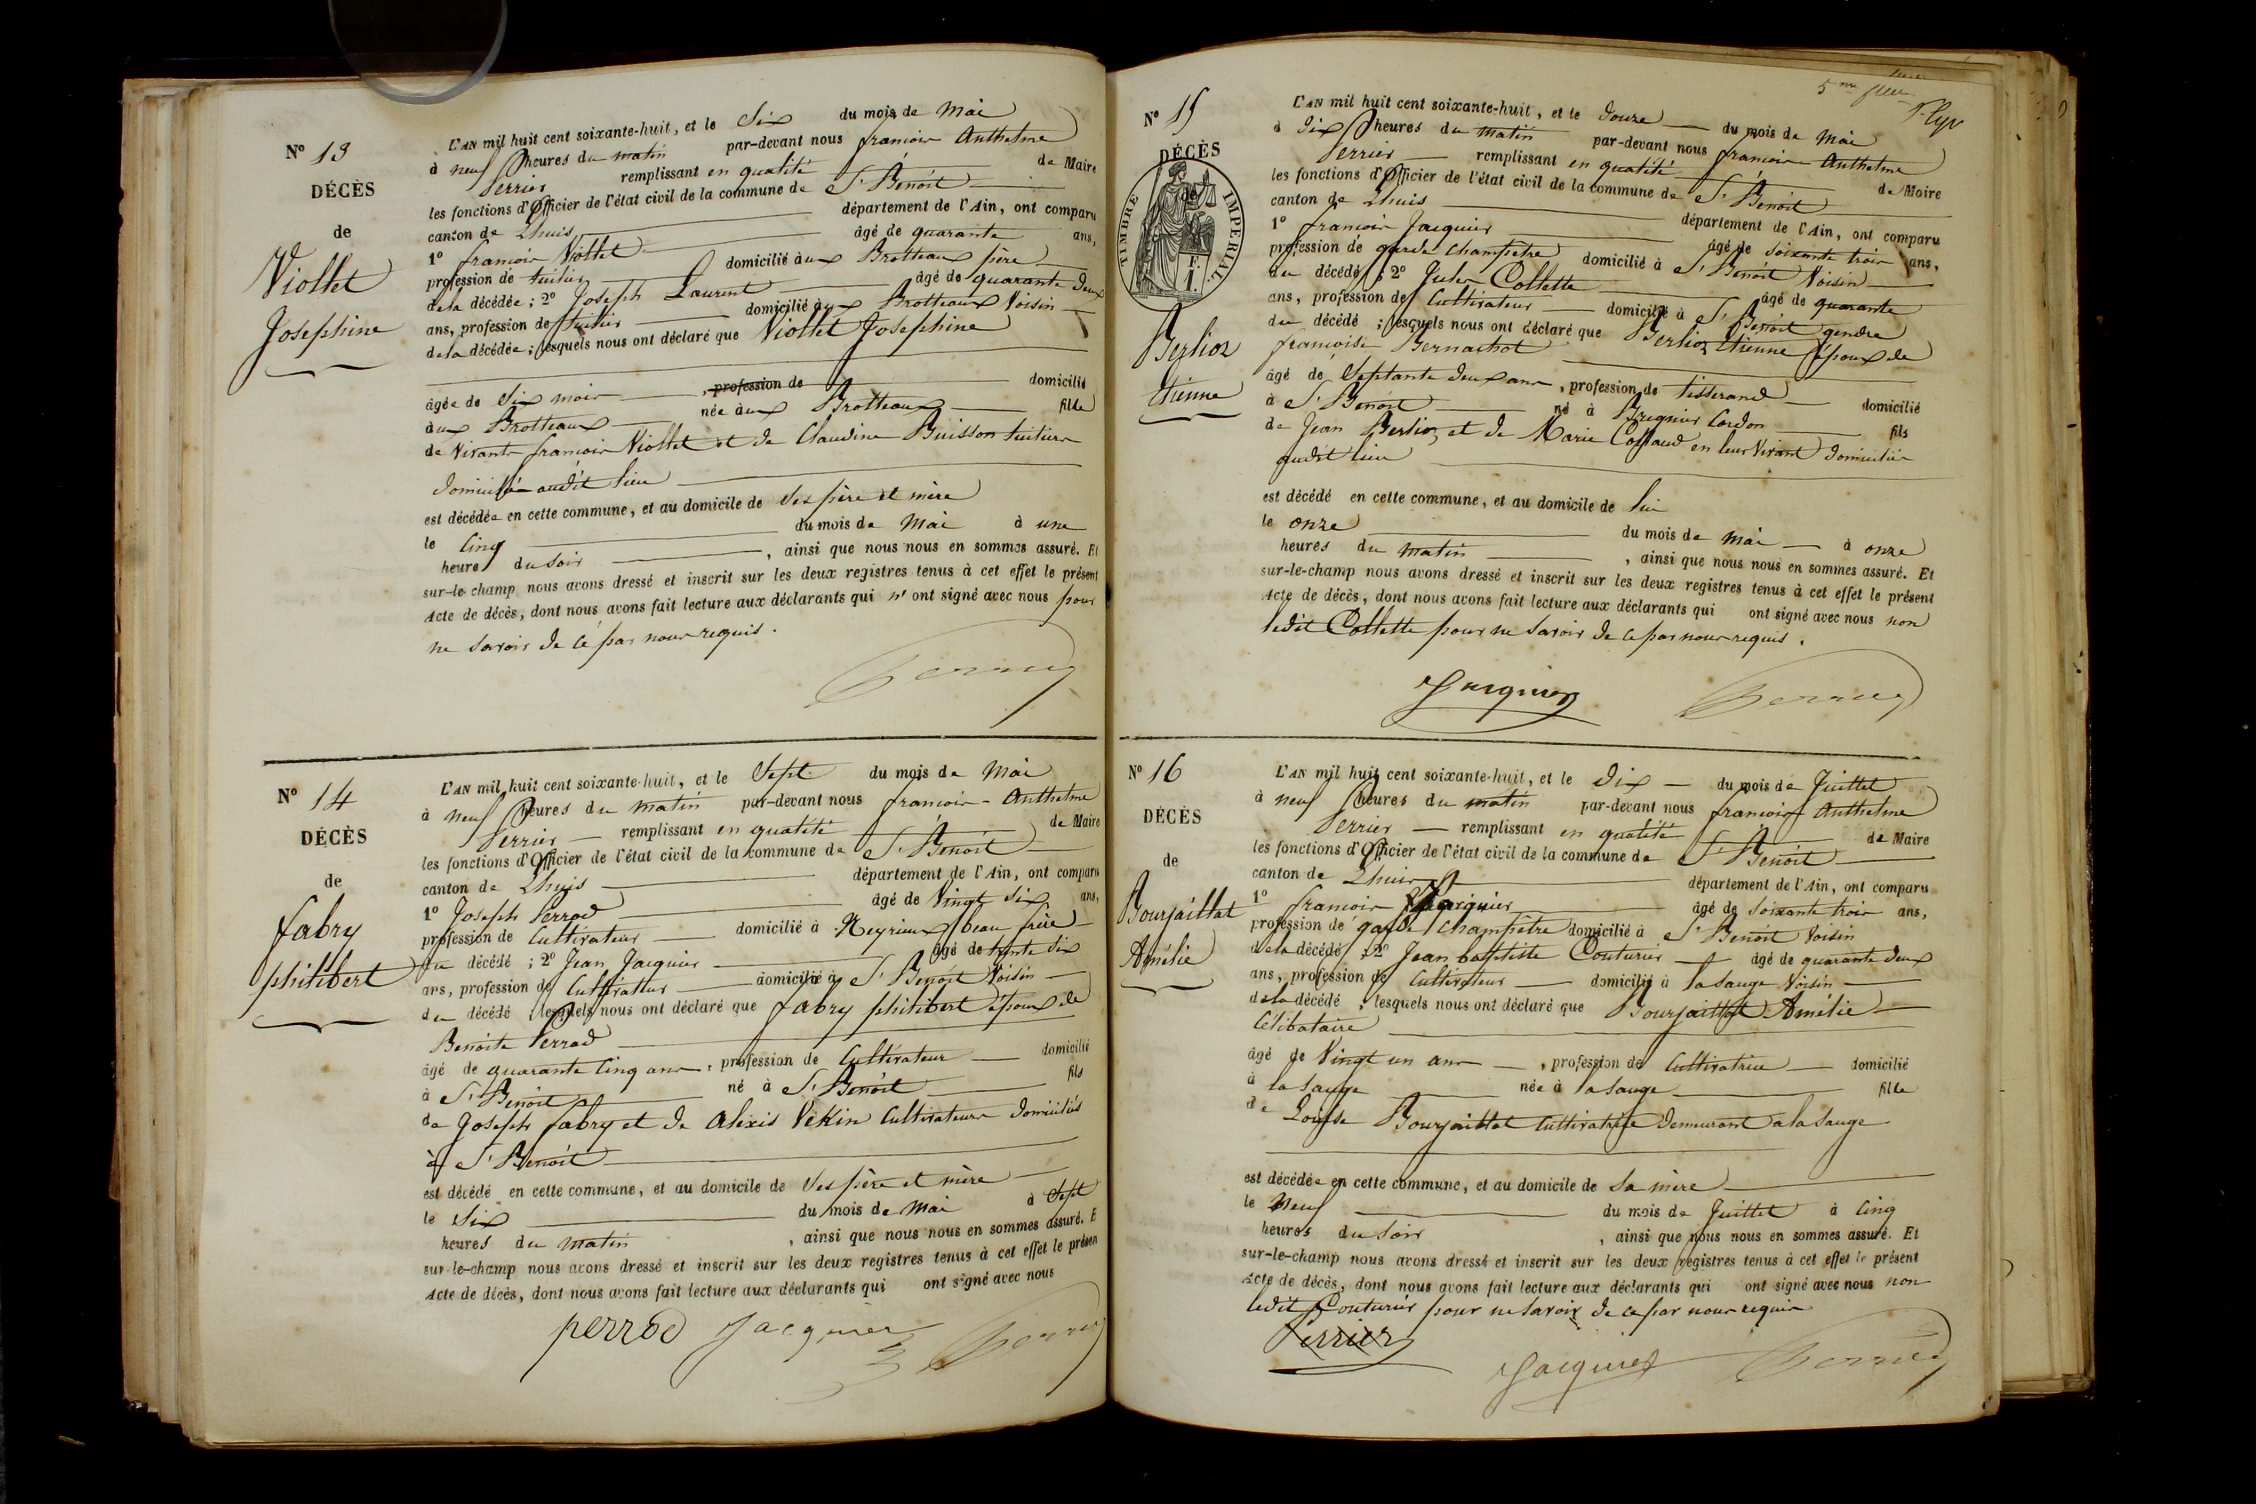 N° 13
DÉCÈS
de
Viollet
Josephine
L'AN mil huit cent soixante-huit, et le Six du mois de Mai
à neuf heures du matin par-devant nous françois Anthelme
Perrier remplissant en qualité de Maire
les fonctions d'Officier de l'état civil de la commune de St Benoit
canton de Lhuis département de l'Ain, ont comparu
1° françois Viollet âgé de quarante ans,
profession de tuilier domicilié aux Brotteaux père
de la décédée ; 2° Joseph Laurent âgé de quarante deux
ans, profession de tuilier domicilié aux Brotteaux Voisin
de la décédée ; lesquels nous ont déclaré que Viollet Josephine
âgée de Six mois , profession de domicilié
aux Brotteaux née aux Brotteaux fille
de Vivants françois Viollet et de Claudine Buisson tuiliers
domiciliés audit lieu
est décédée en cette commune, et au domicile de Ses père et mère
le Cinq du mois de Mai à une
heure du Soir , ainsi que nous nous en sommes assuré. Et
sur-le-champ nous avons dressé et inscrit sur les deux registres tenus à cet effet le présent
Acte de décès, dont nous avons fait lecture aux déclarants qui n'ont signé avec nous pour
ne savoir de ce par nous requis.
Perrier
N° 14
DÉCÈS
de
fabry
philibert
L'AN mil huit cent soixante-huit, et le Sept du mois de Mai
à neuf heures du matin par-devant nous françois Anthelme
Perrier remplissant en qualité de Maire
les fonctions d'Officier de l'état civil de la commune de St Benoit
canton de Lhuis département de l'Ain, ont comparu
1° Joseph Perrod âgé de Vingt Six ans,
profession de Cultivateur domicilié à Neyrieux beau frère
du décédé ; 2° Jean Jacquier âgé de trente Six
ans, profession de Cultivateur domicilié à St Benoit Voisin
du décédé ; lesquels nous ont déclaré que fabry philibert époux de
Benoite Perrod
âgé de quarante Cinq ans , profession de Cultivateur domicilié
à St Benoit né à St Benoit fils
de Joseph fabry et de Alexis Vekin Cultivateurs domiciliés
à St Benoit
est décédé en cette commune, et au domicile de Ses père et mère
le Six du mois de Mai à Sept
heures du matin , ainsi que nous nous en sommes assuré. E
sur-le-champ nous avons dressé et inscrit sur les deux registres tenus à cet effet le présen
Acte de décès, dont nous avons fait lecture aux déclarants qui ont signé avec nous
perrod Jacquier Perrier
5me
N° 15
DÉCÈS
de
TIMBRE IMPÉRIAL
1 F.
Berlioz
Etienne
L'AN mil huit cent soixante-huit, et le Douze du mois de Mai
à Dix heures du matin par-devant nous françois Anthelme
Perrier remplissant en qualité de Maire
les fonctions d'Officier de l'état civil de la commune de St Benoit
canton de Lhuis département de l'Ain, ont comparu
1° françois Jacquier âgé de Soixante trois ans,
profession de garde Champêtre domicilié à St Benoit Voisin
du décédé ; 2° Jules Collette âgé de quarante
ans, profession de Cultivateur domicilié à St Benoit gendre
du décédé ; lesquels nous ont déclaré que Berlioz Etienne époux de
françoise Bernachot
âgé de Septante deux ans , profession de tisserand domicilié
à St Benoit né à Bregnier Cordon fils
de Jean Berlioz et de Marie en leur Vivant domiciliés
audit lieu
est décédé en cette commune, et au domicile de lui
le onze du mois de Mai à onze
heures du matin , ainsi que nous nous en sommes assuré. Et
sur-le-champ nous avons dressé et inscrit sur les deux registres tenus à cet effet le présent
Acte de décès, dont nous avons fait lecture aux déclarants qui ont signé avec nous non
ledit Collette pour ne Savoir de ce par nous requis.
Jacquier Perrier
N° 16
DÉCÈS
de
Bourjaillat
Amélie
L'AN mil huit cent soixante-huit, et le Dix du mois de Juillet
à neuf heures du matin par-devant nous françois Anthelme
Perrier remplissant en qualité de Maire
les fonctions d'Officier de l'état civil de la commune de St Benoit
canton de Lhuis département de l'Ain, ont comparu
1° françois Jacquier âgé de Soixante trois ans,
profession de garde Champêtre domicilié à St Benoit Voisin
de la décédé ; 2° Jean baptiste Couturier âgé de quarante deux
ans, profession de Cultivateur domicilié à la Sauge Voisin
de la décédé ; lesquels nous ont déclaré que Bourjaillat Amélie
Célibataire
âgé de Vingt un ans , profession de Cultivatrice domicilié
à la Sauge née à la Sauge fille
de Louise Bourjaillat Cultivatrice Demeurant a la Sauge
est décédée en cette commune, et au domicile de Sa mère
le Neuf du mois de Juillet à Cinq
heures du Soir , ainsi que nous nous en sommes assuré. Et
sur-le-champ nous avons dressé et inscrit sur les deux registres tenus à cet effet le présent
Acte de décès, dont nous avons fait lecture aux déclarants qui ont signé avec nous non
ledit Couturier pour ne Savoir de ce par nous requis
Perrier
Jacquier Perrier